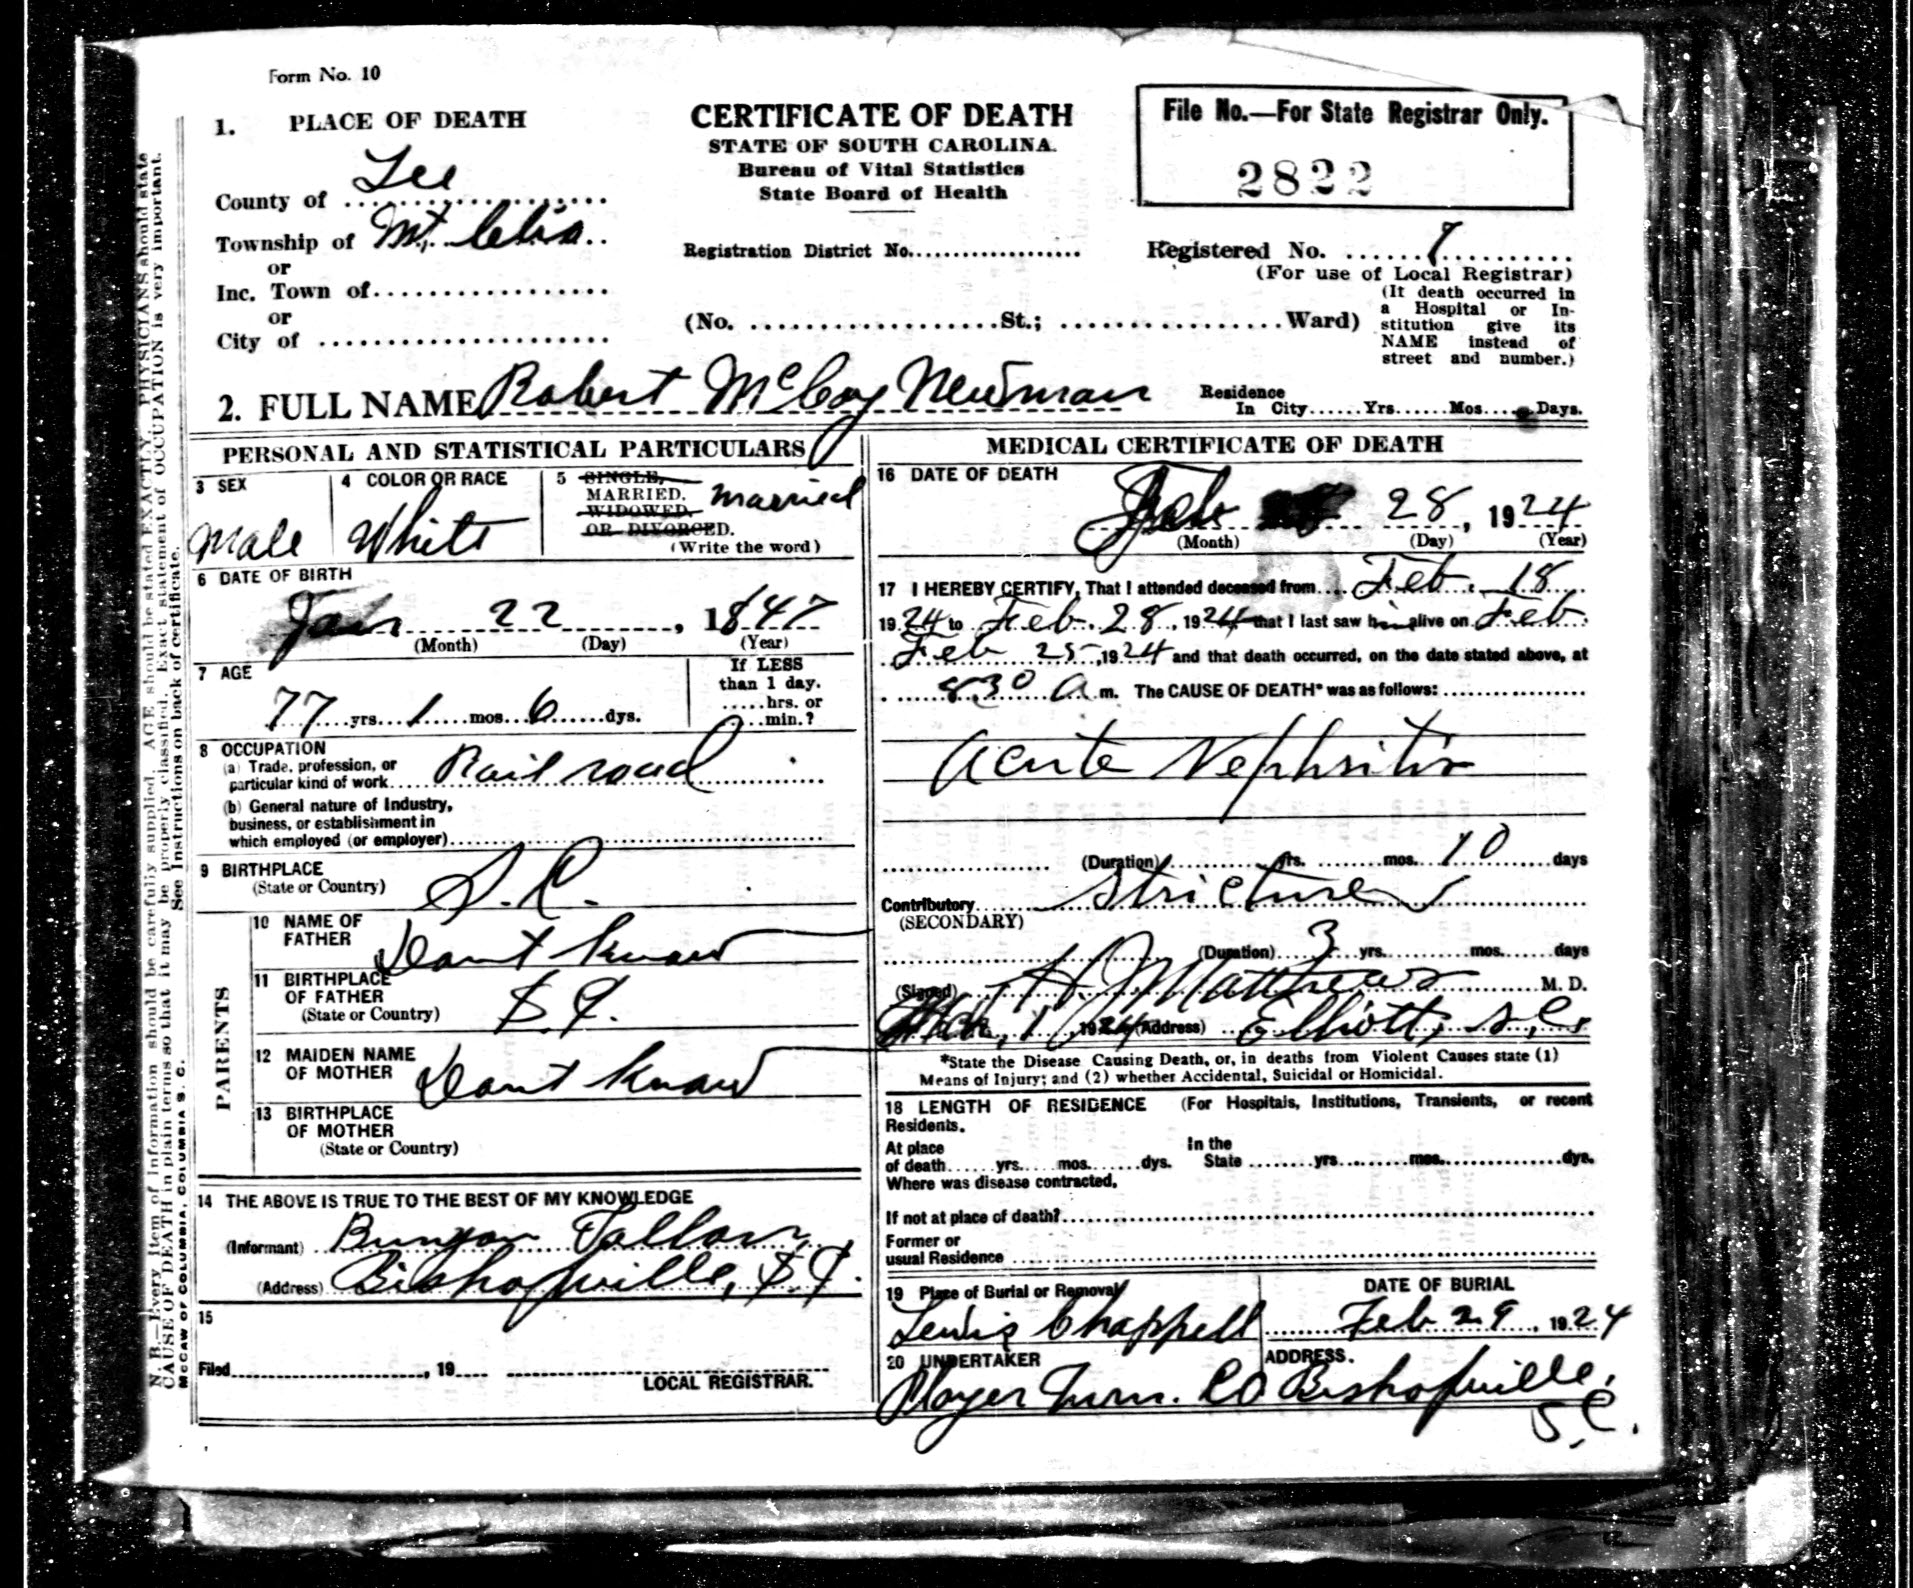 Form No. 10
1. PLACE OF DEATH
County of Lee
Township of Mt. Clio
or
Inc. Town of
or
City of
CERTIFICATE OF DEATH
STATE OF SOUTH CAROLINA.
Bureau of Vital Statistics
State Board of Health
File No.—For State Registrar Only.
2822
Registration District No.
Registered No. 7
(For use of Local Registrar)
(No. St.; Ward)
(It death occurred in
a Hospital or In-
stitution give its
NAME instead of
street and number.)
2. FULL NAME Robert McCoy Newman
Residence
In City Yrs. Mos. Days.
PERSONAL AND STATISTICAL PARTICULARS
3 SEX
Male
4 COLOR OR RACE
White
5 SINGLE,
MARRIED,
WIDOWED,
OR DIVORCED.
married
(Write the word)
6 DATE OF BIRTH
Jan 22, 1847
(Month) (Day) (Year)
7 AGE
77 yrs. 1 mos. 6 dys.
If LESS
than 1 day,
hrs. or
min.?
8 OCCUPATION
(a) Trade, profession, or
particular kind of work Rail road
(b) General nature of Industry,
business, or establishment in
which employed (or employer)
9 BIRTHPLACE
(State or Country) S. C.
PARENTS
10 NAME OF
FATHER Dont know
11 BIRTHPLACE
OF FATHER
(State or Country) S. C.
12 MAIDEN NAME
OF MOTHER Dont know
13 BIRTHPLACE
OF MOTHER
(State or Country)
14 THE ABOVE IS TRUE TO THE BEST OF MY KNOWLEDGE
(Informant) Bunyon
(Address) Bishopville, S. C.
15
Filed , 19
LOCAL REGISTRAR.
MEDICAL CERTIFICATE OF DEATH
16 DATE OF DEATH
Feb 28, 1924
(Month) (Day) (Year)
17 I HEREBY CERTIFY, That I attended deceased from Feb. 18
1924 to Feb. 28, 1924 that I last saw him alive on Feb
Feb 25, 1924 and that death occurred, on the date stated above, at
830 a m. The CAUSE OF DEATH* was as follows:
Acute Nephritis
(Duration) yrs. mos. 10 days
Contributory Stricture
(SECONDARY)
(Duration) 3 yrs. mos. days
(Signed) H J Matthews M. D.
Mch, 1, 1924 (Address) Elliott, S. C.
*State the Disease Causing Death, or, in deaths from Violent Causes state (1)
Means of Injury; and (2) whether Accidental, Suicidal or Homicidal.
18 LENGTH OF RESIDENCE (For Hospitals, Institutions, Transients, or recent
Residents.
At place In the
of death yrs. mos. dys. State yrs. mos. dys.
Where was disease contracted,
If not at place of death?
Former or
usual Residence
19 Place of Burial or Removal
Lewis Chappell
DATE OF BURIAL
Feb 29, 1924
20 UNDERTAKER
Player Furn. Co
ADDRESS.
Bishopville,
S. C.
N. B.—Every item of Information should be carefully supplied. AGE should be stated EXACTLY. PHYSICIANS should state
CAUSE OF DEATH in plain terms so that it may be properly classified. Exact statement of OCCUPATION is very important.
See Instructions on back of certificate.
McCAW OF COLUMBIA, COLUMBIA S. C.